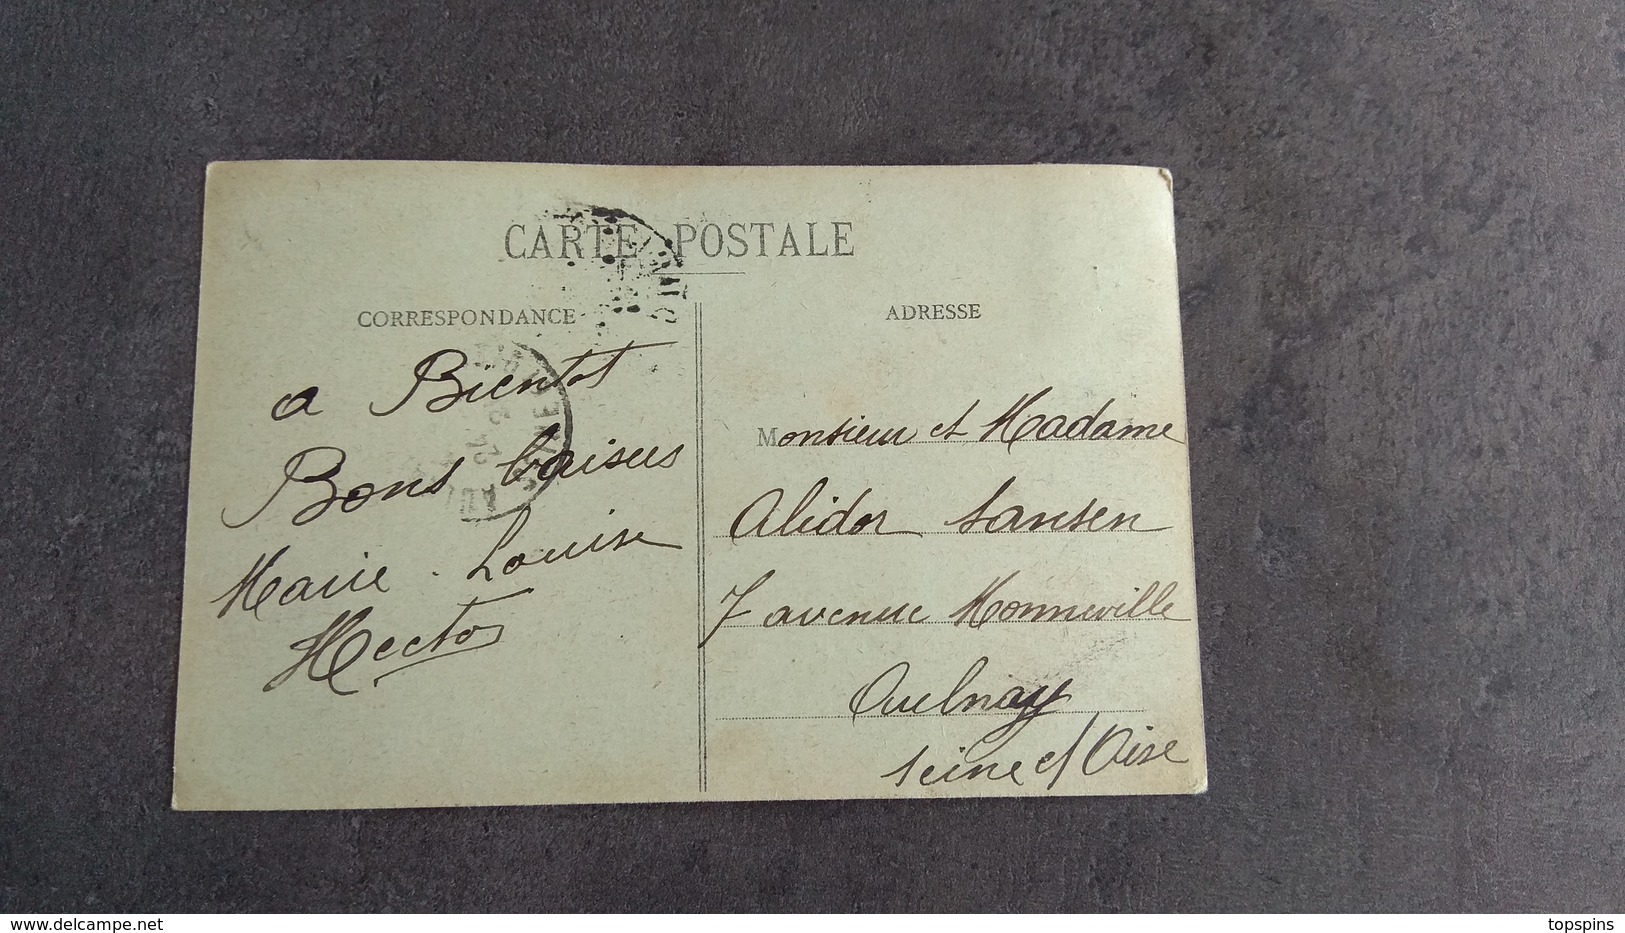 CARTE POSTALE
CORRESPONDANCE
a Bientot
Bons baisers
Marie. Louise
Hector
ADRESSE
Monsieur et Madame
Alidor Sansen
7 avenue Monneville
Aulnay
Seine et Oise
www.delcampe.net
topspins